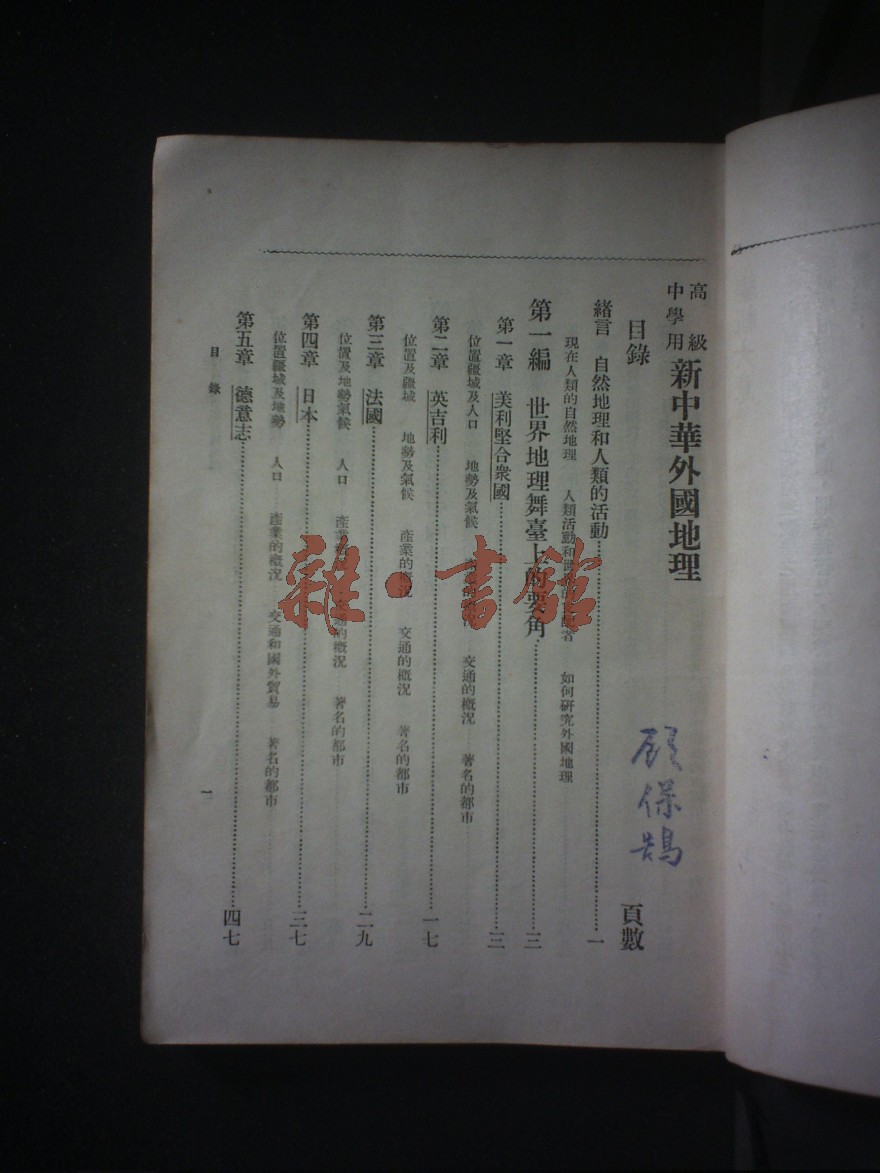 高級
中學用
新中華外國地理
目錄
頁數
緒言 自然地理和人類的活動……一
現在人類的自然地理 人類活動和 如何研究外國地理
第一編 世界地理舞臺上的要角……三
第一章 美利堅合衆國……三
位置疆域及人口 地勢及氣候 交通的概況 著名的都市
第二章 英吉利……一七
位置及疆域 地勢及氣候 產業的概況 交通的概況 著名的都市
第三章 法國……二九
位置及地勢氣候 人口 產業 交通的概況 著名的都市
第四章 日本……三七
位置疆域及地勢 人口 產業的概況 交通和國外貿易 著名的都市
第五章 德意志……四七
目錄
一
顧保鵠
雜·書館